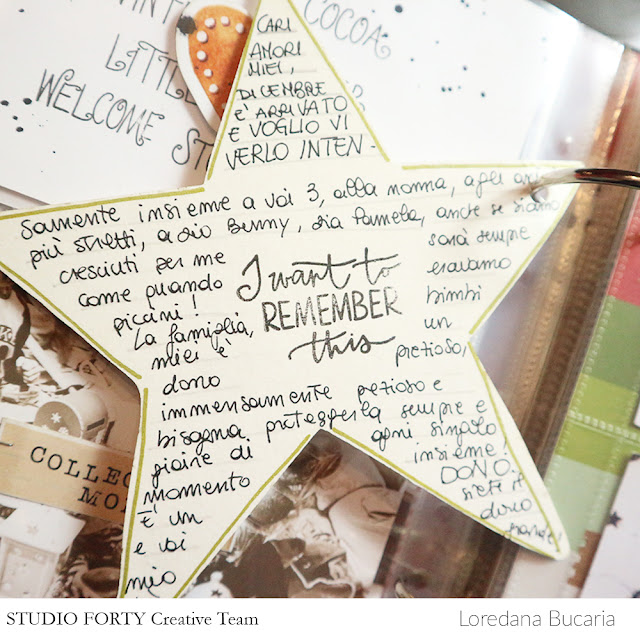 COCOA
LITTLE
WELCOME ST
CARI
AMORI
MIEI,
DICEMBRE
E' ARRIVATO
E VOGLIO VI
VERLO INTEN-
SAMENTE insieme a voi 3, alla nonna, agli
più stretti, a zio Bunny, zia Pamela, anche se siamo
cresciuti per me sarà sempre
come quando eravamo
piccini! bimbi
La famiglia, un
miei è prezioso,
dono
I want to
REMEMBER
this
immensamente prezioso e
bisogna proteggerla sempre e
gioire di ogni singolo
momento insieme,
È un DONO.
e voi siete il
mio dono
COLLEC
MO
STUDIO FORTY Creative Team
Loredana Bucaria